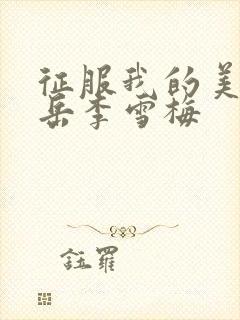 征服我的美
岳李雪梅
钰罗